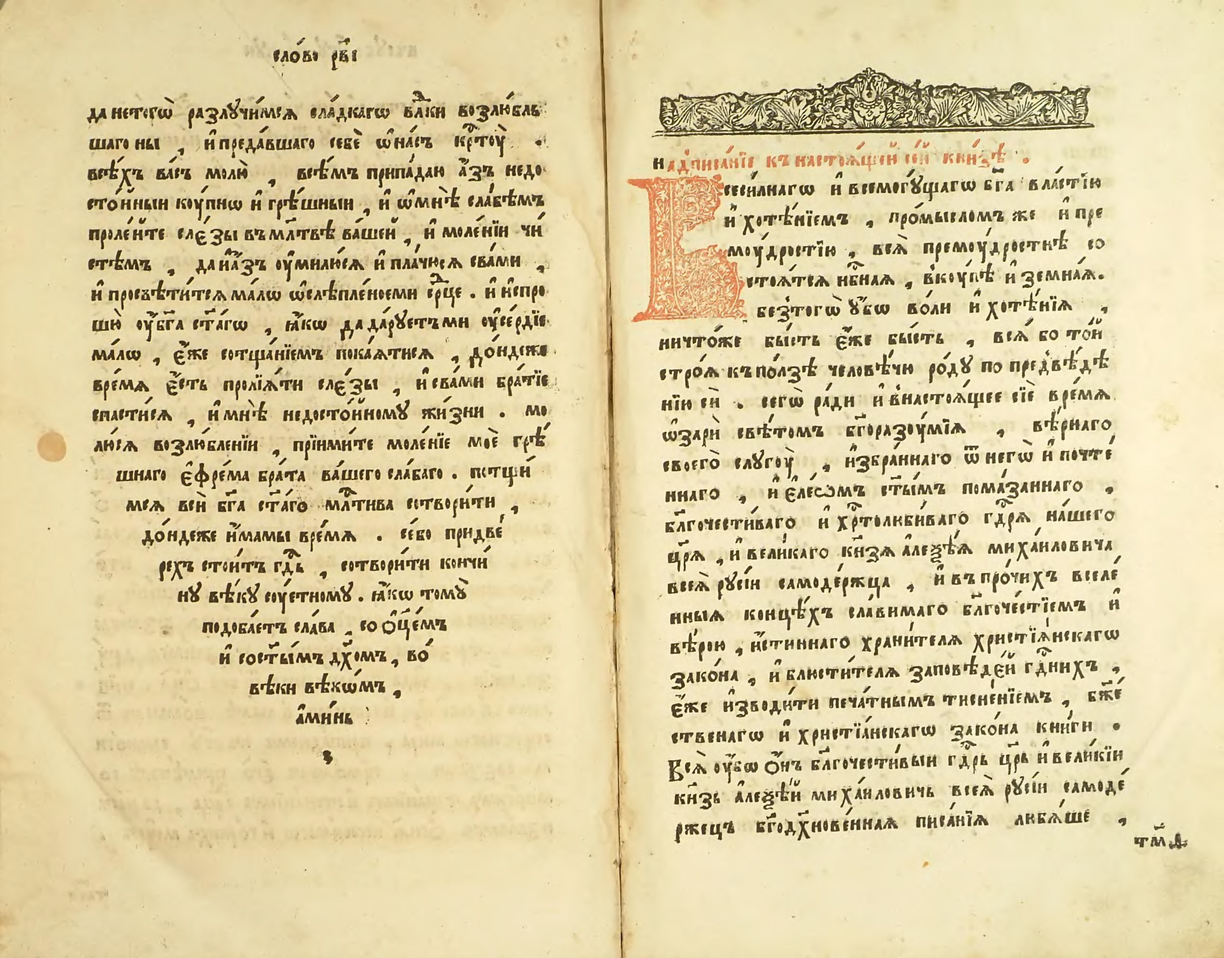 сло́во рв҃і
да не тогѡ̀ разлꙋчи́мсѧ сла́дкагѡ влⷣки возлю́бль
шаго ны̀ , и҆ преда́вшаго себѐ ѡ҆ на́съ крⷭ҇тоу̀ .
всѣ́хъ ва́съ молю̀ , всѣ́мъ припа́даю а҆́зъ недо
сто́йныи коу́пнѡ и҆ грѣ́шныи , и҆ ѡ҆ мнѣ̀ сла́бѣмъ
проле́йте сле́зы въ мл҃твѣ ва́шей , и҆ моле́нїи чи
стѣ́мъ , да и҆ а҆́зъ оу҆милю́сѧ и҆ пла́чюсѧ с ва́ми ,
и҆ просвѣти́тсѧ ма́лѡ ѡ҆слѣпле́ное ми срⷣце . и҆ и҆спро
шꙋ̀ оу҆ бг҃а ст҃а́гѡ , ꙗ҆́кѡ да да́рꙋетъ ми оу҆се́рдїе
ма́лѡ , є҆́же со тща́нїемъ пока́ѧтисѧ , до́ндеже
вре́мѧ є҆́сть пролїѧ́ти сле́зы , и҆ с ва́ми бра́тїе
спасти́сѧ , и҆ мнѣ̀ недосто́йномꙋ жи́зни . мо
лю́сѧ возлю́бленїи , прїими́те моле́нїе моѐ грѣ́
шнаго є҆фре́ма бра́та ва́шего сла́баго . потщи́
мсѧ всѝ бг҃а ст҃а́го млⷭ҇тива сотвори́ти ,
до́ндеже и҆́мамы вре́мѧ . се́ бо при две́
рехъ стои́тъ гдⷭ҇ь , сотвори́ти кончи́
нꙋ вѣ́кꙋ соу́етномꙋ . ꙗ҆́кѡ томꙋ̀
подоба́етъ сла́ва , со ѻ҆ц҃е́мъ
и҆ со ст҃ы́мъ дх҃омъ , во́
вѣки вѣкѡ́мъ ,
а҆ми́нь :
надписа́нїе къ настоѧ́щей се́й кни́зѣ .
Всеси́лнагѡ и҆ всемогꙋ́щагѡ бг҃а вла́стїю
и҆ хотѣ́нїемъ , про́мысломъ же и҆ пре
моу́дростїю , всѧ̀ премоу́дростнѣ со
стоѧ́тсѧ нб҃наѧ , вкоу́пѣ и҆ земна́ѧ .
без̾ тогѡ̀ оу҆́бѡ во́ли и҆ хотѣ́нїѧ ,
ничто́же бы́сть є҆́же бы́сть , всѧ́ бо то́й
стро́ѧ к по́лзѣ человѣ́чю ро́дꙋ по предвѣ́дѣ
нїю сѝ . сегѡ̀ ра́ди и҆ в настоѧ́щее сїѐ вре́мѧ
ѡ҆зарѝ свѣ́томъ бг҃оразоу́мїѧ , вѣ́рнаго
своего̀ слꙋгоу̀ , и҆збра́ннаго ѿ негѡ̀ и҆ почте́
ннаго , и҆ є҆ле́ѡмъ ст҃ы́мъ пома́заннаго ,
бл҃гочести́ваго и҆ хрⷭ҇толюби́ваго гдⷭ҇рѧ на́шего
цр҃ѧ̀ , и҆ вели́каго кн҃зѧ а҆леѯѣ́ѧ миха́иловича
всеѧ̀ рꙋсі́и самоде́ржца , и҆ въ про́чихъ вселе́
нныѧ конце́хъ сла́вимаго бл҃гоче́стїемъ и҆
вѣ́рою , и҆́стиннаго храни́телѧ христїѧ́нскагѡ
зако́на , и҆ блюсти́телѧ за́повѣдей гдⷭ҇нихъ ,
є҆́же и҆зводи́ти печа́тнымъ тисне́нїемъ , бж҃е́
ственагѡ и҆ христїа́нскагѡ зако́на кни́ги .
Всѧ̀ оу҆́бѡ ѻ҆́нъ бл҃гочести́выи гдⷭ҇рь цр҃ь и҆ вели́кїи
кн҃зь а҆леѯѣ́й миха́иловичь всеѧ̀ рꙋсі́и самоде́
ржецъ бг҃одх҃нове́ннаѧ писа́нїѧ любѧ́ше ,